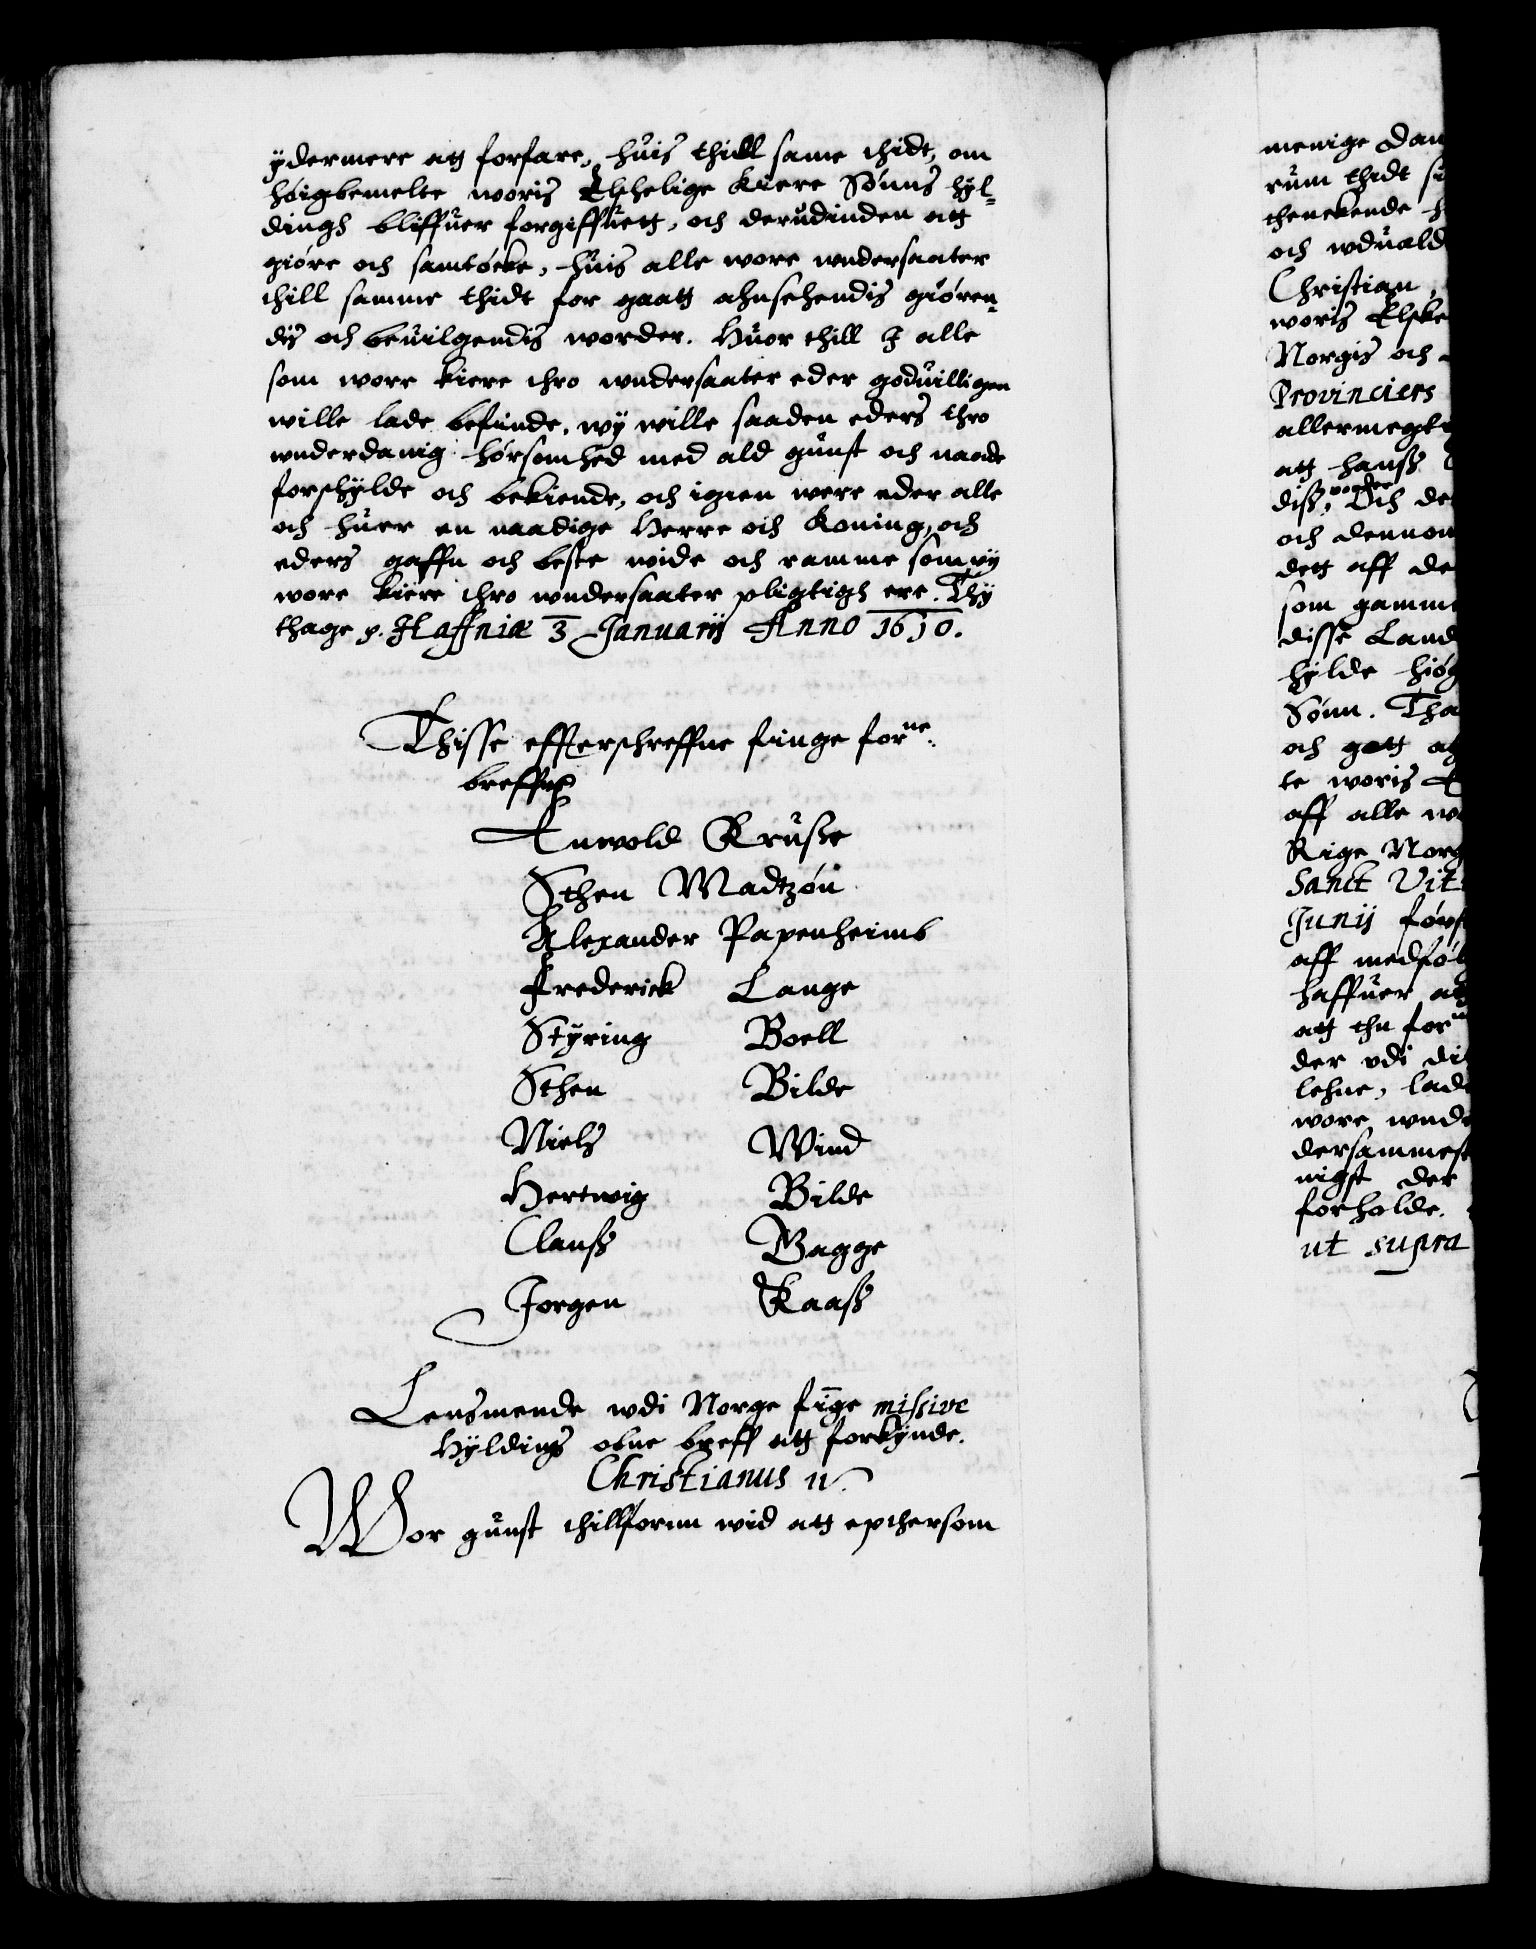 ydermere att forfare, huis thill same thidt, om
høigbemelte woris Elschelige kiere Sønns hyl-
dingh bliffuer forgiffuett, och derudinden att
giøre och samtøcke, huis alle wore wndersaater
thill samme thidt for gaatt ahnsehendis giøren-
dis och beuilgendis worder. Huor thill I alle
som wore kiere thro wndersaater eder goduilligen
wille lade befinde, wy wille saaden eders thro
wnderdanig hørsomhed med ald gunst och naade
forschylde och bekiende, och igien were eder alle
och huer en naadige Herre och Koning, och
eders gaffn och beste wide och ramme som wy
wore kiere thro wndersaater pligtigh ere. Thy
thage p. Haffniæ 3 Januarij Anno 1610.
Thisse effterschreffne finge forne.
breffue
Enwold Kruse
Sthen Madtzøn
Alexander Papenheimb
Frederick Lange
Styring Boell
Sthen Bilde
Niels Wind
Hertwig Bilde
Clauß Bagge
Jørgen Kaaß
Lensmende wdi Norge finge missive
Hyldings obne breff att forkynde.
Christianus 4.
Wor gunst thillforn wid att epthersom
menige Dan
rum thidt
thenckende
och wduald
Christian,
woris Elske
Norgis och
Provinciers
allermegti
att hanß
worder
diß, Och de
och dennom
dett aff de
som gamm
disse Land
hylde høg
Sønn. Tha
och gott at
te woris E
aff alle wo
Rige Norg
Sanct Vit
Junij førs
aff medføl
haffuer at
att thu forn
der vdi dit
lehne, lade
wore wnde
dersammest
nigst der
forholde.
ut supra